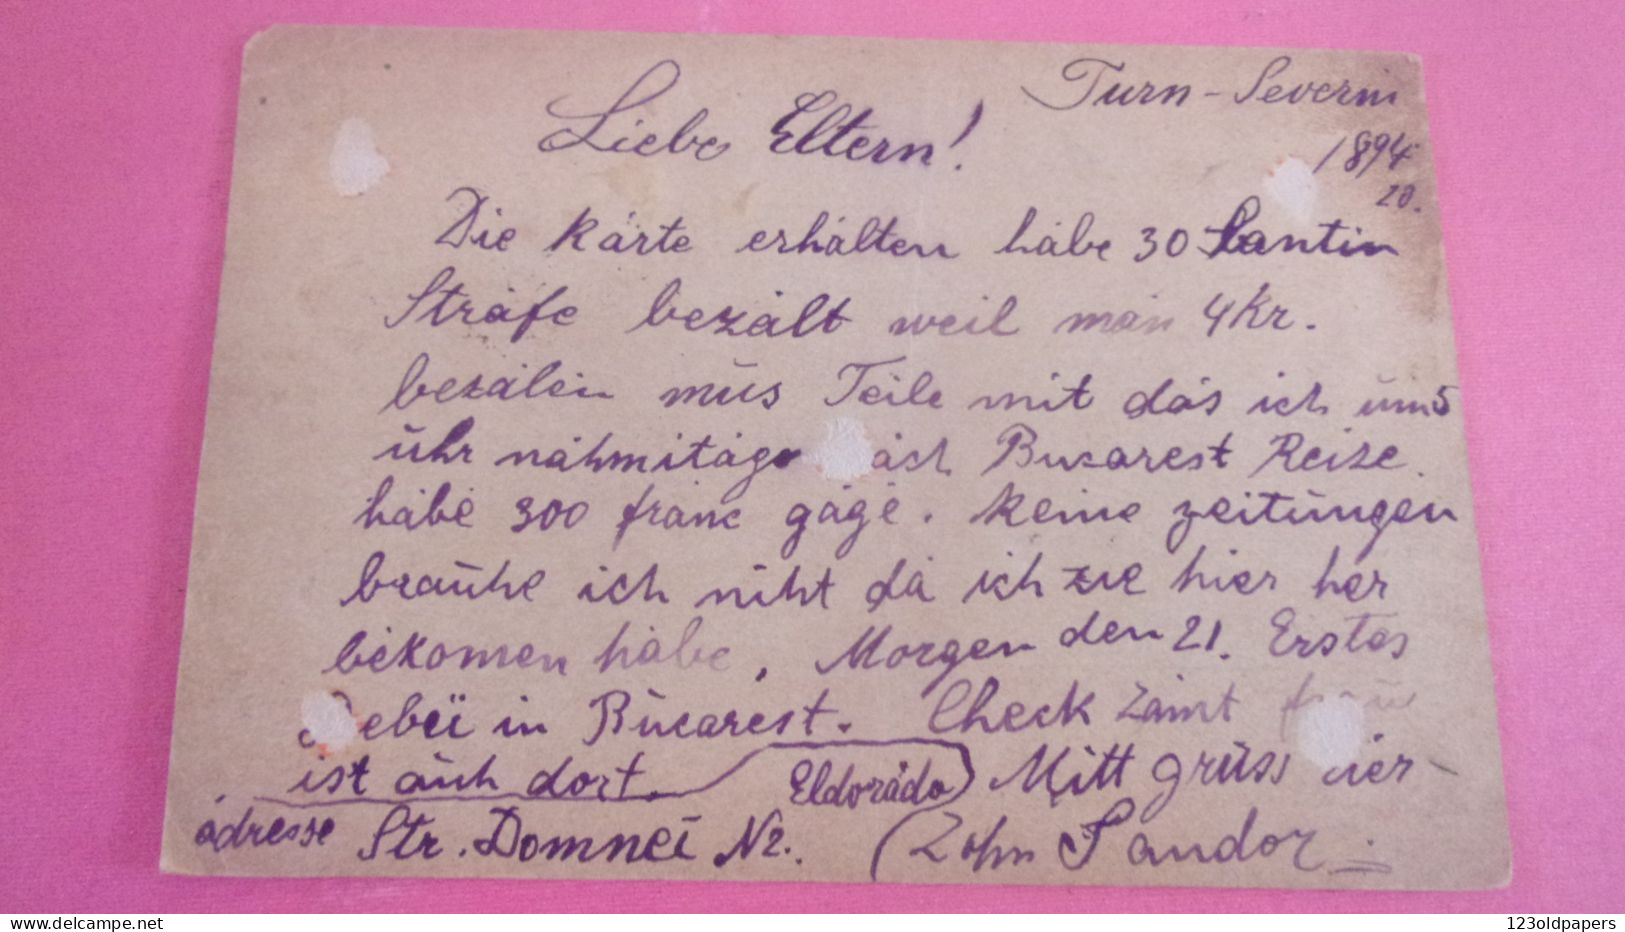 Turn-Severin
1894
20.
Liebe Eltern!
Die Karte erhalten habe 30 Santin
Strafe bezalt weil man 4 Kr.
bezalen mus Teile mit das ich um 5
uhr nahmitag Bucarest Reise.
habe 300 franc gage. Keine zeitungen
brauhe ich niht da ich zie hier her
bekomen habe, Morgen den 21. Erstes
in Bucarest. Check zamt frau
ist auh dort. Eldorado Mitt grüss
adresse Str. Domnei N2. (Zohn Sandor
123oldpapers